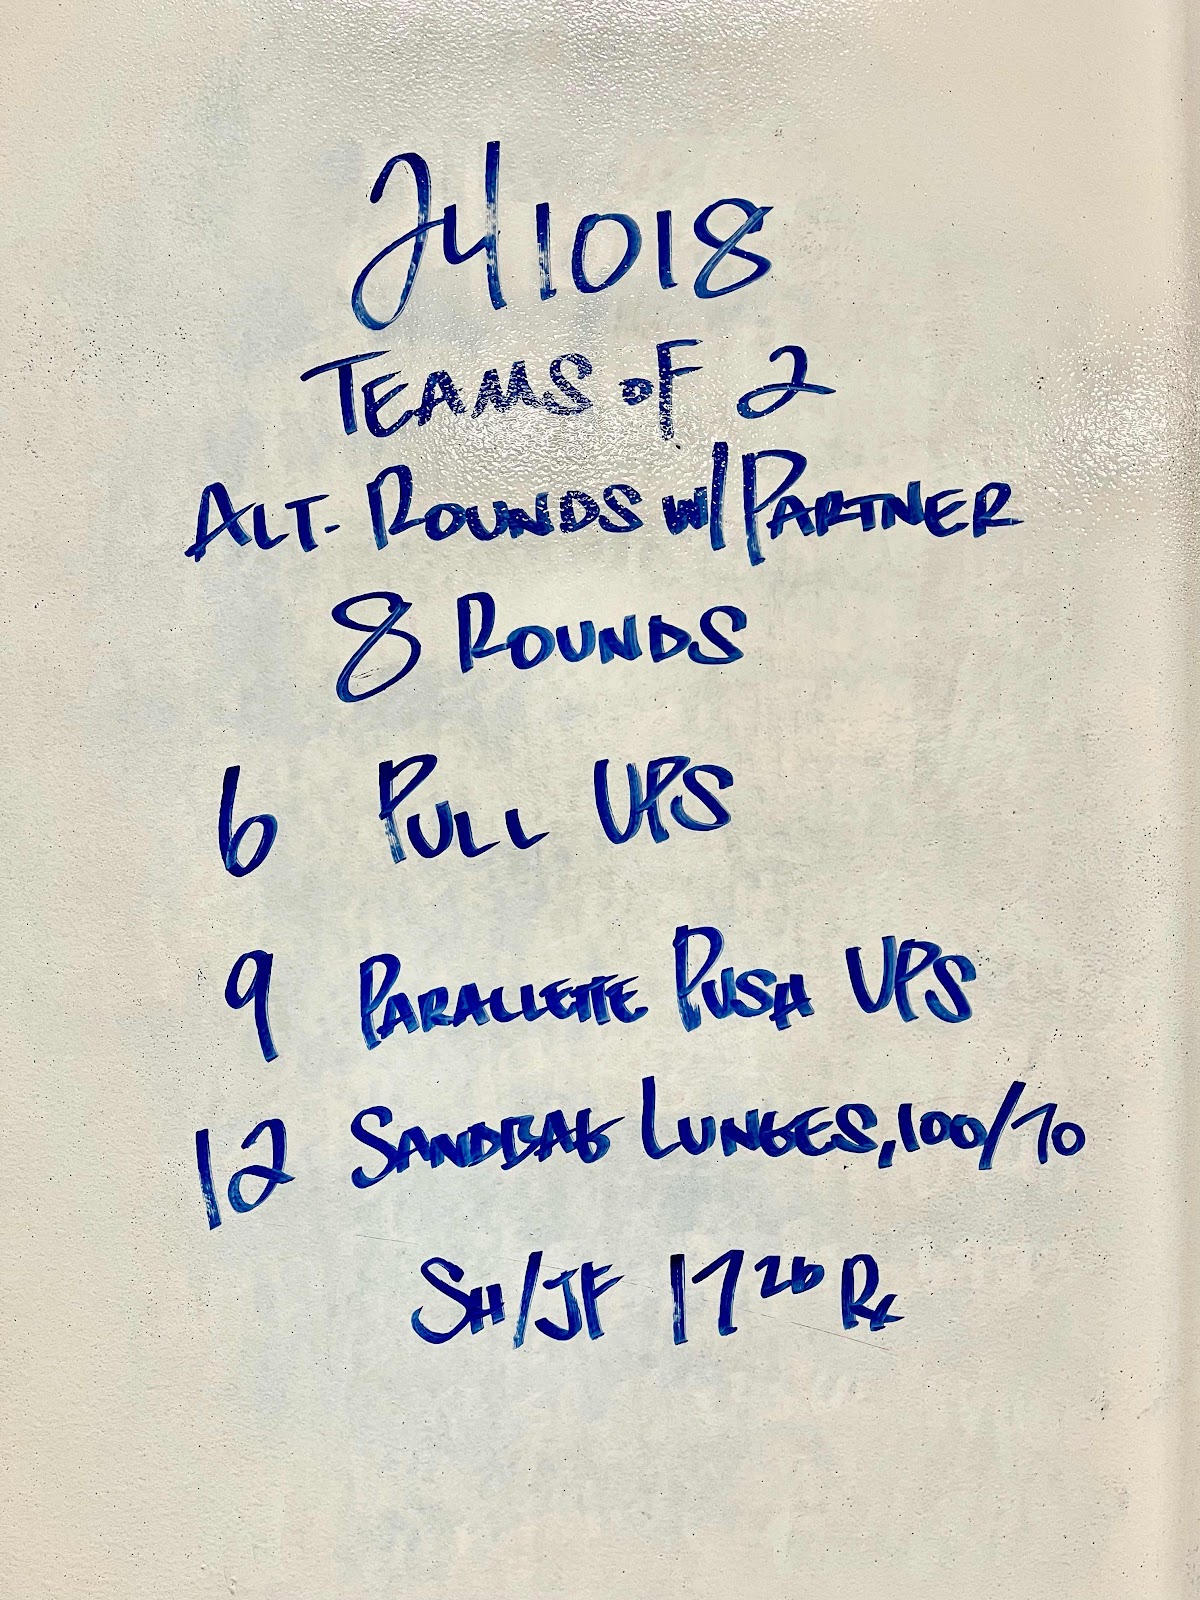 241018
TEAMS OF 2
ALT. ROUNDS W/ PARTNER
8 ROUNDS
6 PULL UPS
9 PARALLETTE PUSH UPS
12 SANDBAG LUNGES, 100/70
SH/JF 17 26 Rx